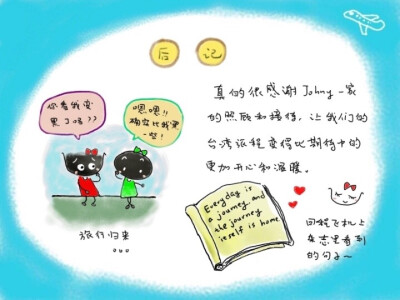 后记
你看我变
黑了吗??
嗯嗯!!
确实比我黑
一些!
旅行归来
...
真的很感谢Johny一家
的照顾和接待,让我们的
台湾旅程变得比期待中的
更加开心和温暖。
Everyday is
a journey and
the journey
itself is home
回程飞机上
杂志里看到
的句子~